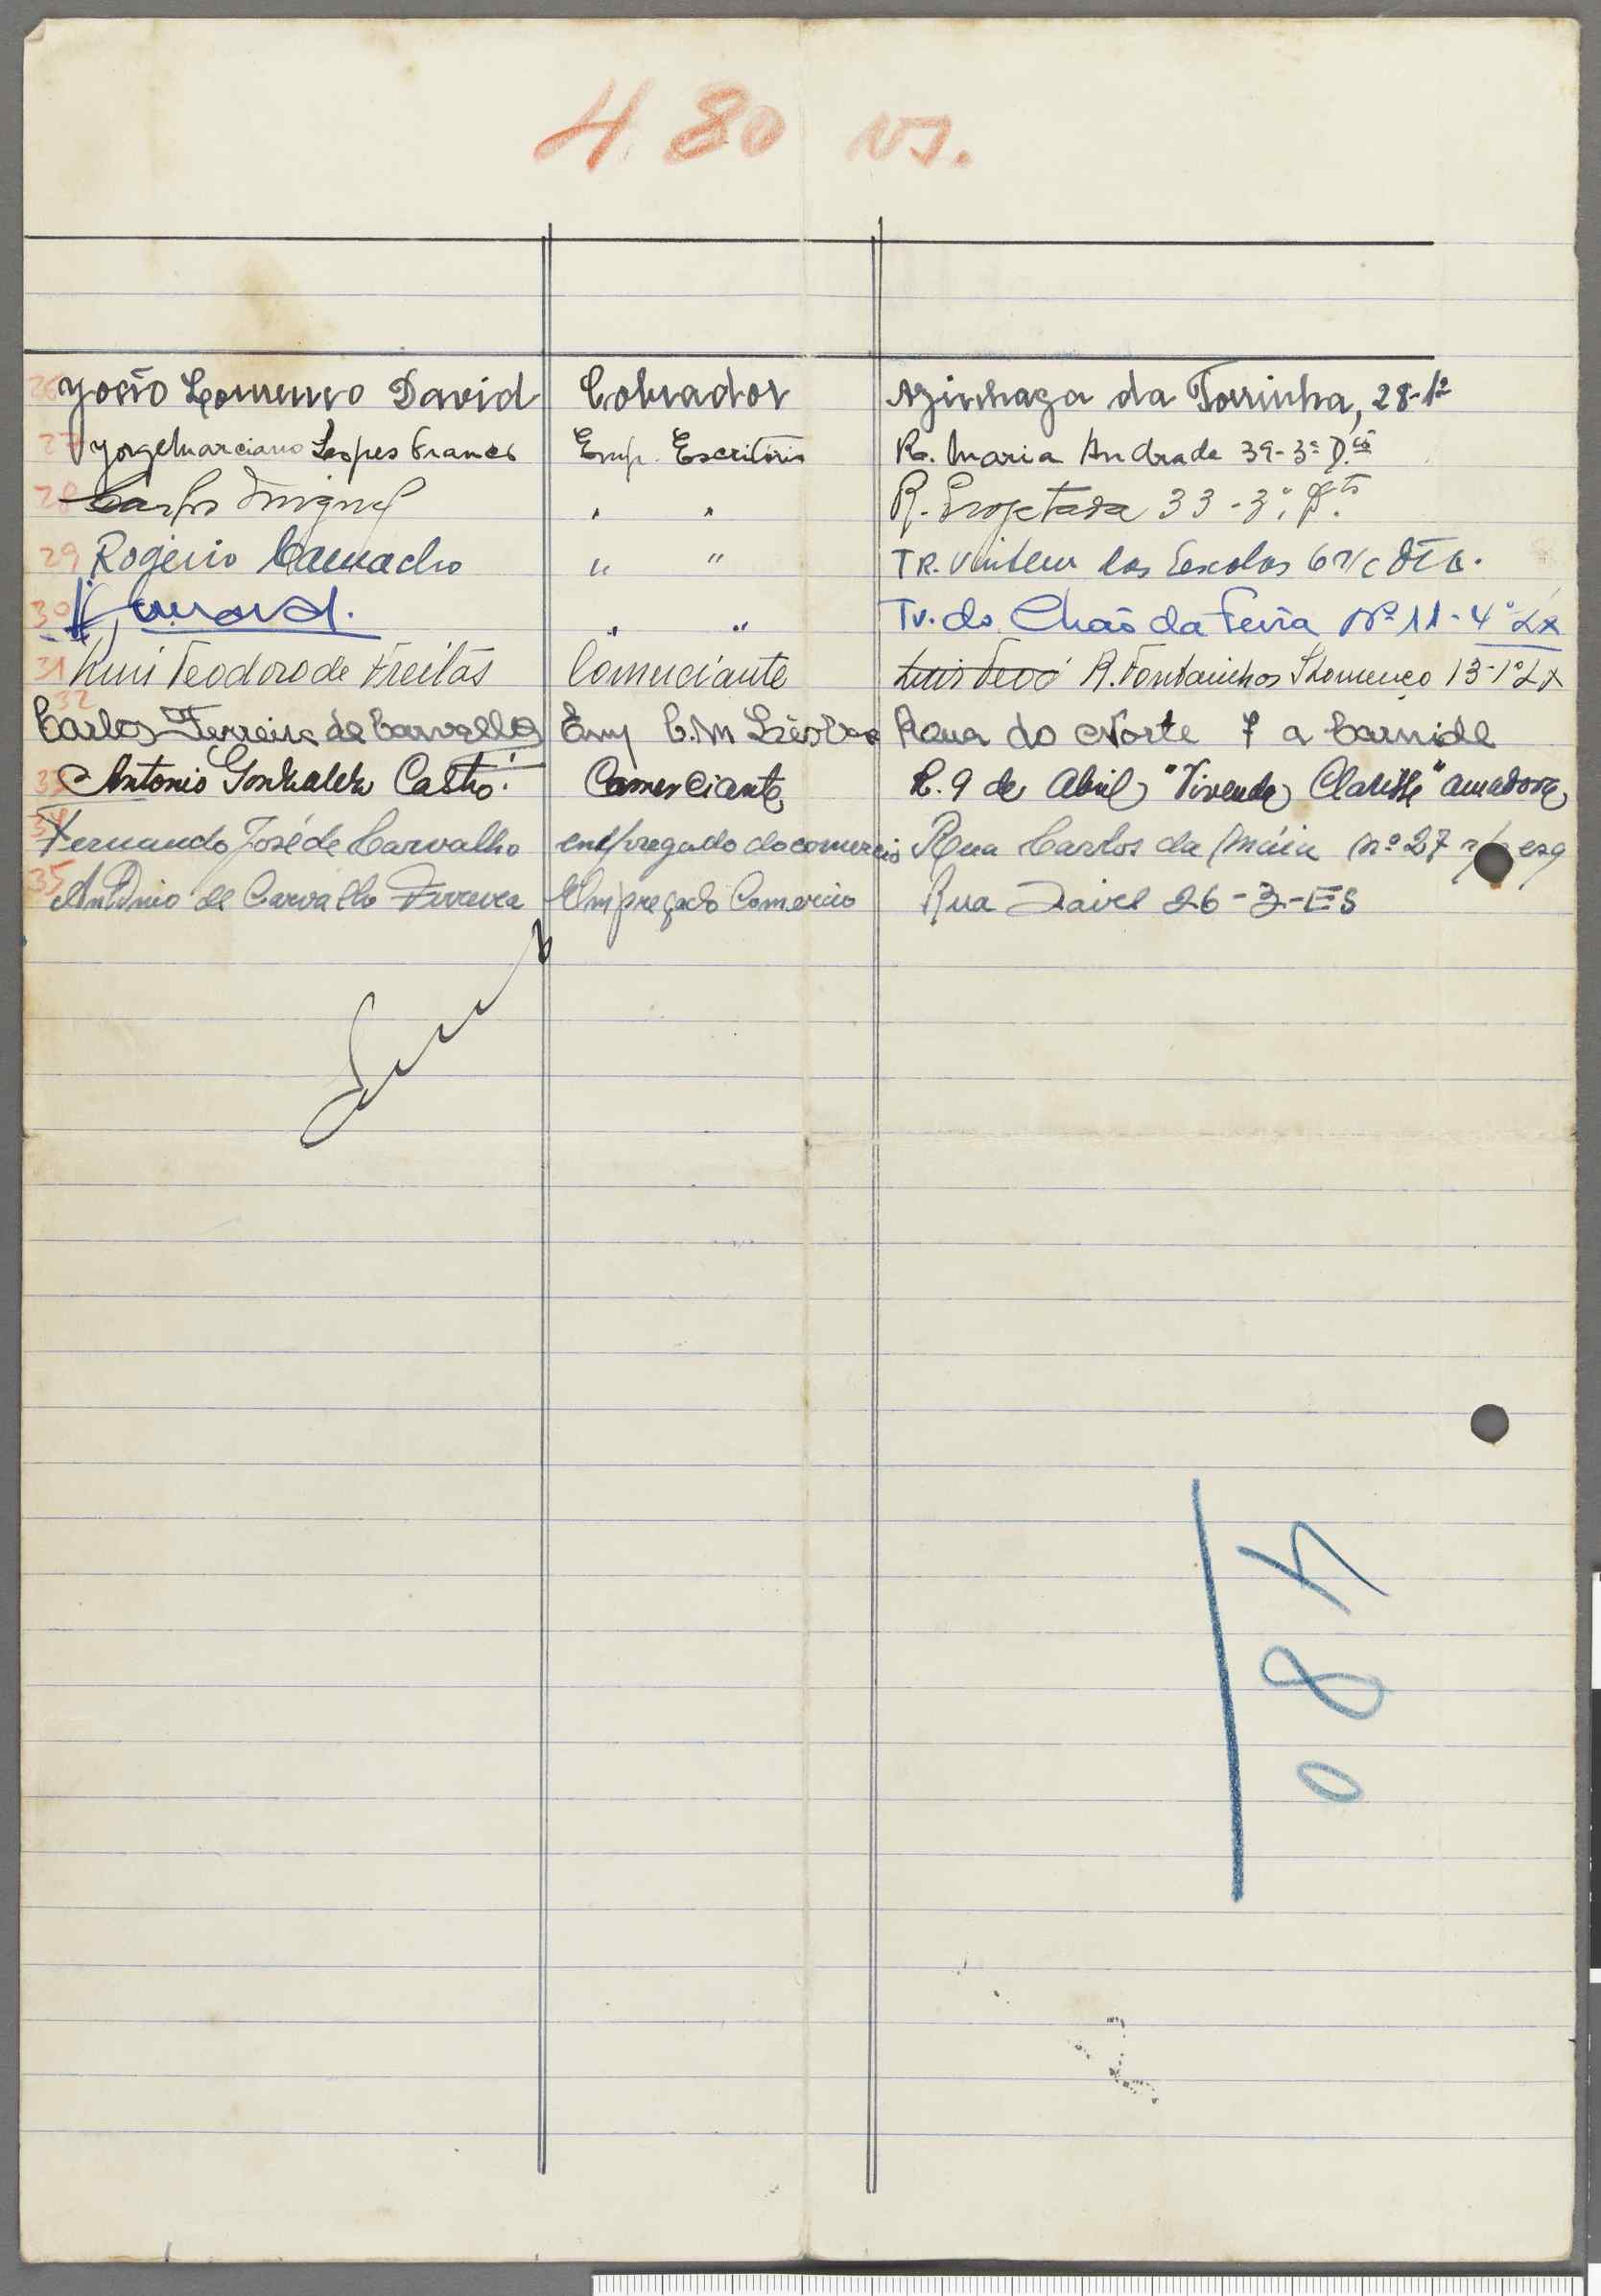 4.80 vs.
26 João Lourenço David Cobrador Azinhaga da Torrinha, 28-1º
27 Jorge Marciano Lopes Franco Emp. Escritório R. Maria Andrade 39-3º D.to
28 Carlos Miguel " " R. Projetada 33-3º. D.to
29 Rogério Camacho " " TR. Vintem das Escolas 6 r/c DTo.
30 " " Tv. do Chão da Feira Nº 11-4º Lx
31 Luis Teodoro de Freitas Comerciante Luis Teod R. Fontainhas S Lourenço 13-1º Lx
32 Carlos Ferreira de Carvalho Emp C.M Lisboa Rua do Norte 7 a Carnide
33 Antonio Gonzalez Castro. Comerciante R. 9 de Abril "Vivenda Clarisse" Amadora
34 Fernando José de Carvalho empregado do comercio Rua Carlos da Máia nº 27 r/c esq
35 António de Carvalho Ferreira Empregado Comercio Rua 26-3-ES
480